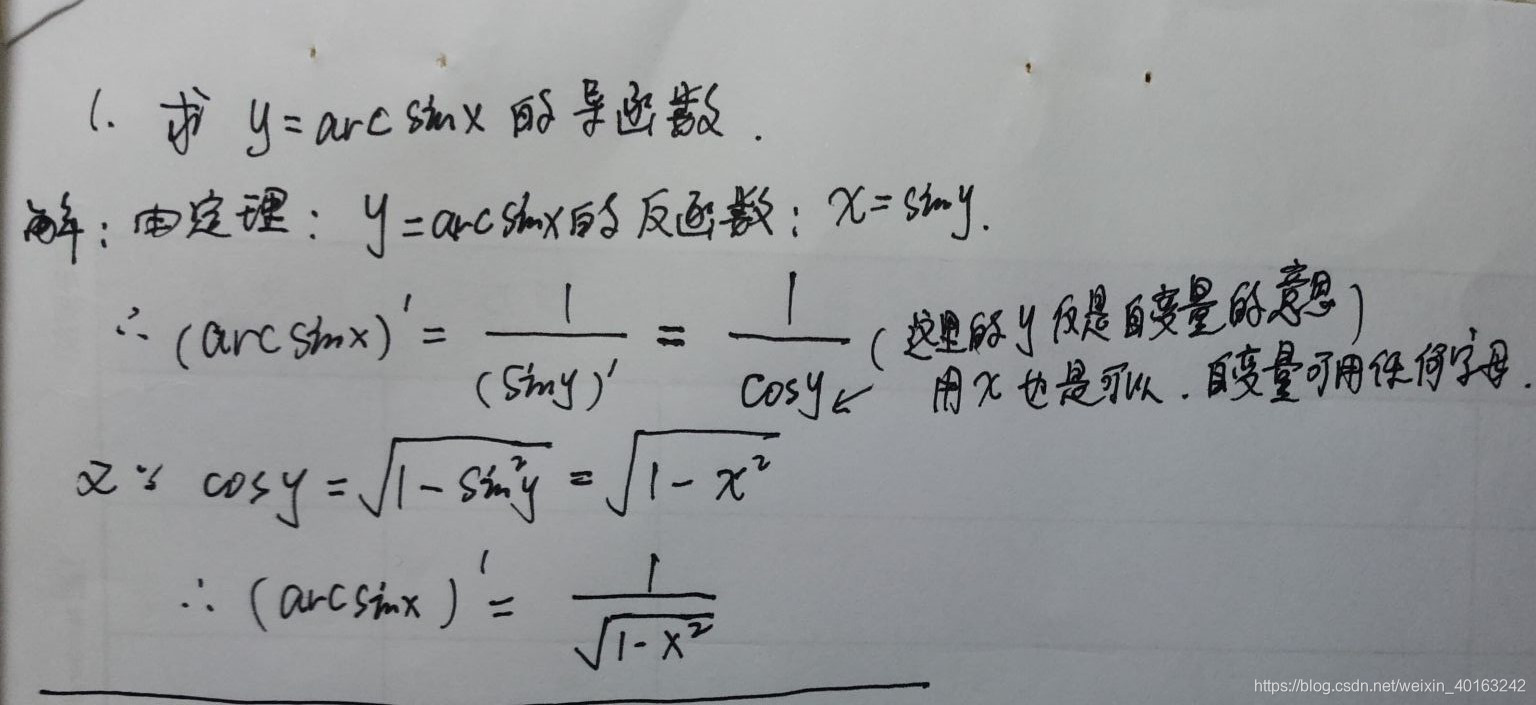 1. 求 y=arcsinx 的导函数.
解：由定理：y=arcsinx的反函数：x=siny.
∴ (arcsinx)' = 1/(siny)' = 1/cosy (这里的y仅是自变量的意思)
用x也是可以.自变量可用任何字母.
又∵ cosy=√(1-sin²y) = √(1-x²)
∴ (arcsinx)' = 1/√(1-x²)
https://blog.csdn.net/weixin_40163242